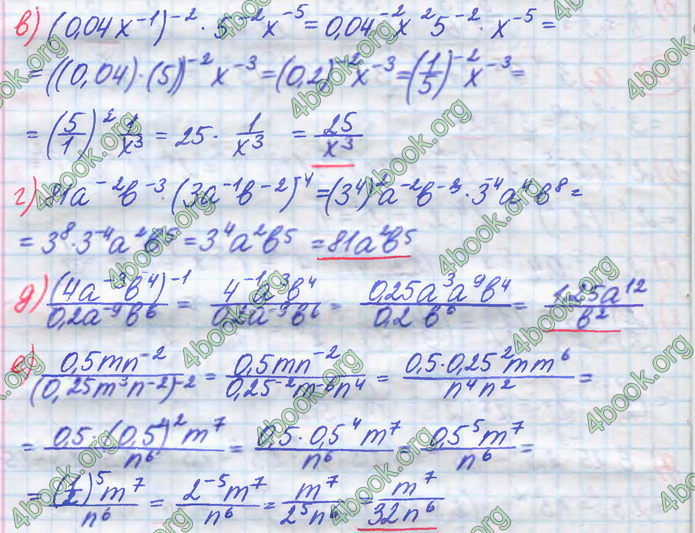 в) (0,04x⁻¹)⁻² · 5⁻²x⁻⁵ = 0,04⁻²x²5⁻² · x⁻⁵ =
= ((0,04)·(5))⁻²x⁻³ = (0,2)⁻²x⁻³ = (1/5)⁻²x⁻³ =
= (5/1)² 1/x³ = 25 · 1/x³ = 25/x³
г) 81a⁻²b⁻³ · (3a⁻¹b⁻²)⁻⁴ = (3⁴)²a⁻²b⁻³ · 3⁻⁴a⁴b⁸ =
= 3⁸·3⁻⁴a²b⁵ = 3⁴a²b⁵ = 81a²b⁵
д) (4a⁻³b⁻⁴)⁻¹/0,2a⁻⁹b⁶ = 4⁻¹a³b⁴/0,2a⁻⁹b⁶ = 0,25a³a⁹b⁴/0,2 b⁶ = 1,25a¹²/b²
е) 0,5mn⁻²/(0,25m³n⁻²)⁻² = 0,5mn⁻²/0,25⁻²m⁻⁶n⁴ = 0,5·0,25²mm⁶/n⁴n² =
= 0,5·(0,5²)²m⁷/n⁶ = 0,5·0,5⁴m⁷/n⁶ = 0,5⁵m⁷/n⁶ =
= (1/2)⁵m⁷/n⁶ = 2⁻⁵m⁷/n⁶ = m⁷/2⁵n⁶ = m⁷/32n⁶
4book.org